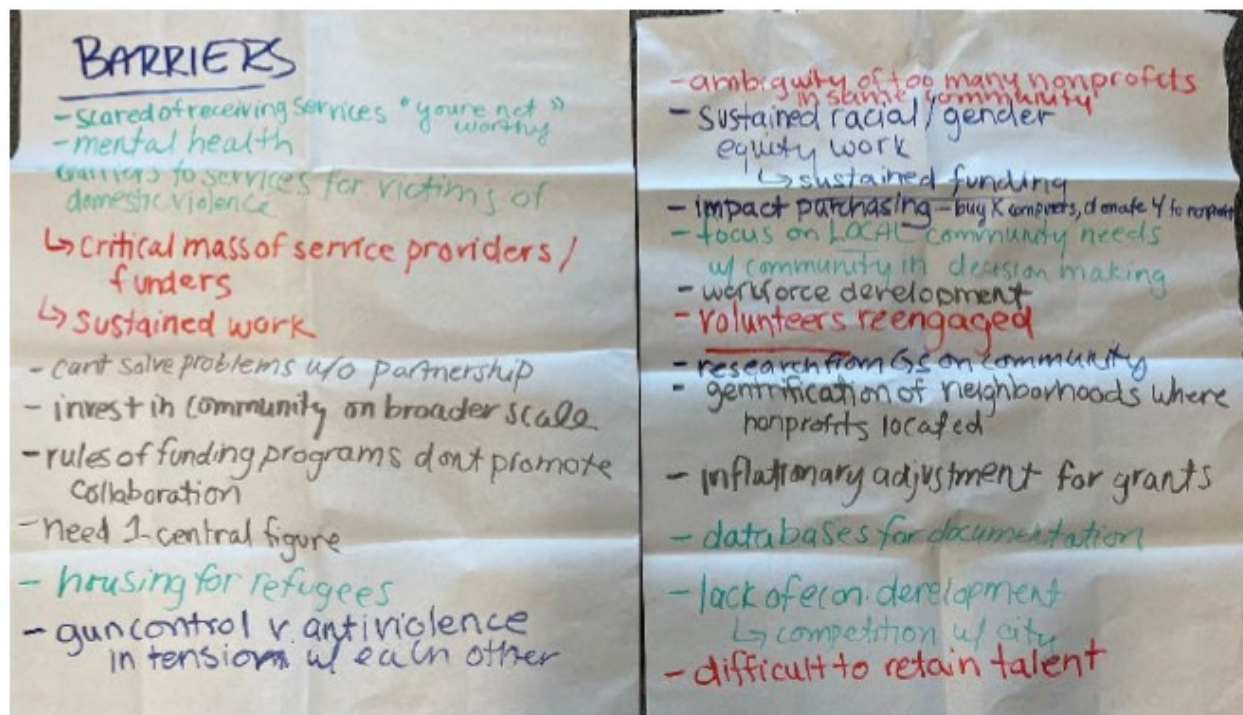 BARRIERS
- scared of receiving services "youre not
worthy"
- mental health
barriers to services for victims of
domestic violence
↳ critical mass of service providers /
funders
↳ sustained work
- cant solve problems w/o partnership
- invest in community on broader scale
- rules of funding programs dont promote
collaboration
- need 1 central figure
- housing for refugees
- gun control v. antiviolence
in tension w/ each other
- ambiguity of too many nonprofits
in same community
- sustained racial/gender
equity work
↳ sustained funding
- impact purchasing - buy X computers, donate Y to nonprofit
- focus on LOCAL community needs
w/ community in decision making
- workforce development
- volunteers reengaged
- research from GS on community
- gentrification of neighborhoods where
nonprofits located
- inflationary adjustment for grants
- databases for documentation
- lack of econ. development
↳ competition w/ city
- difficult to retain talent